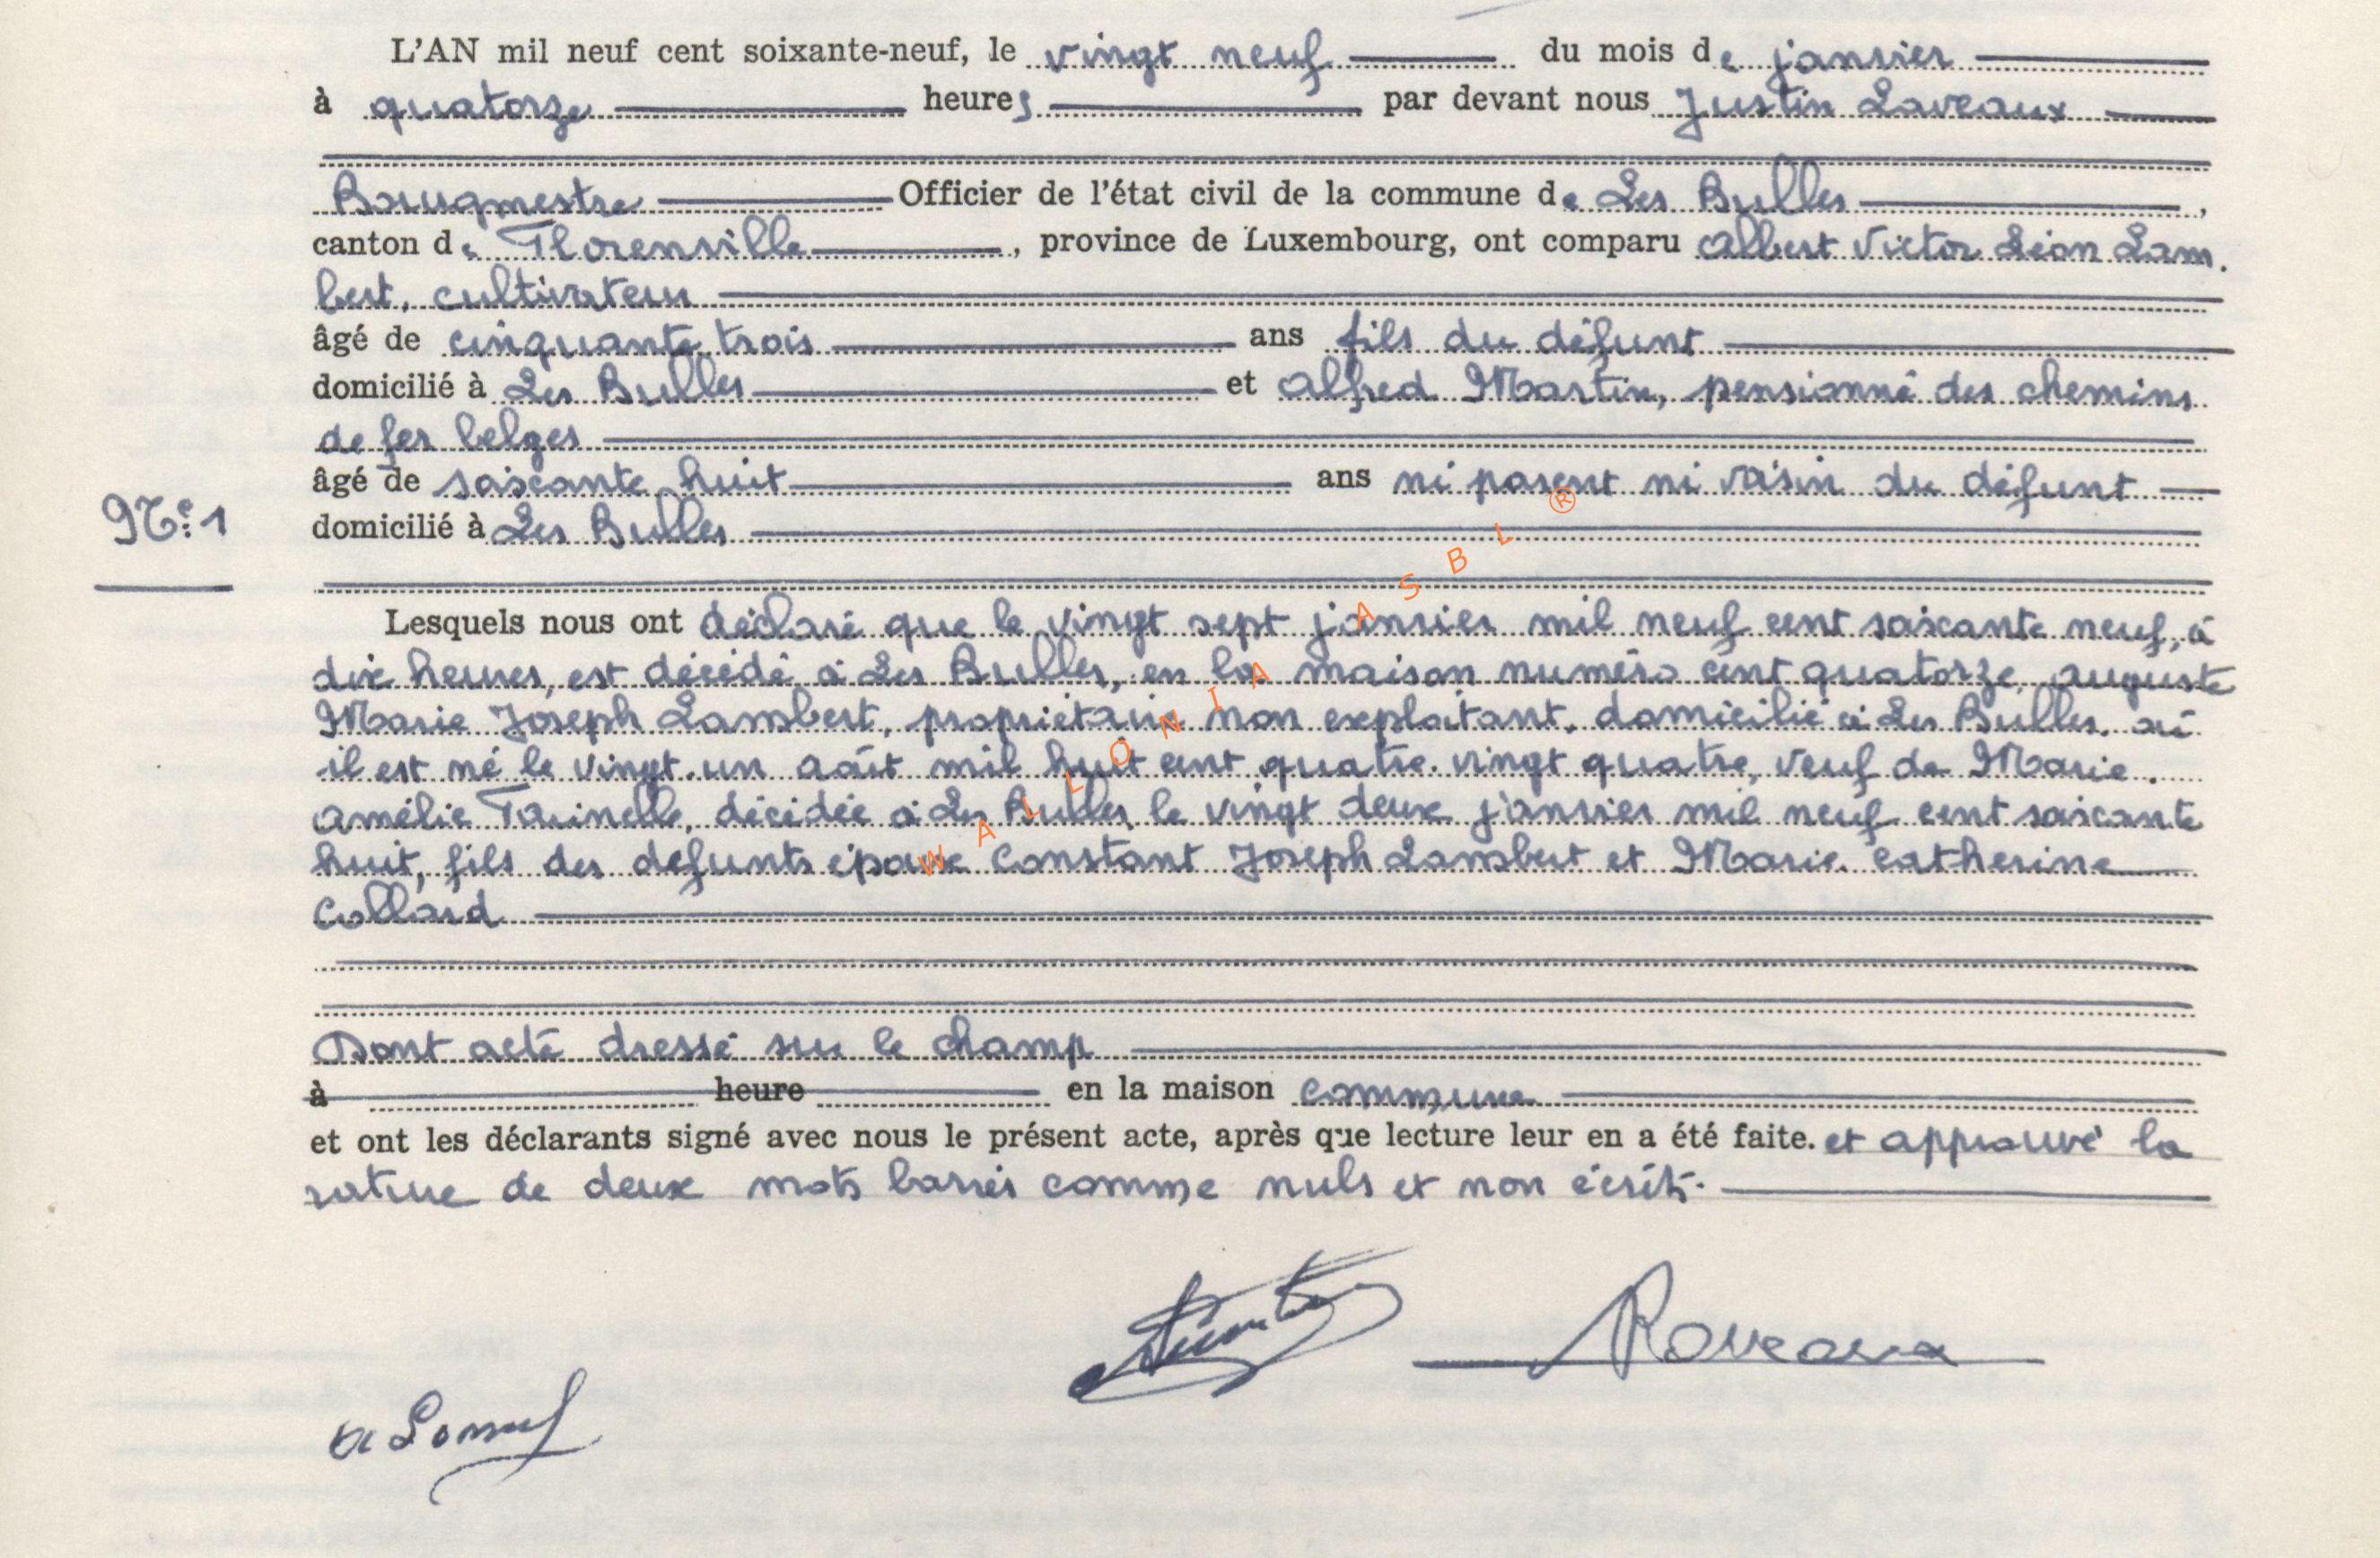 L'AN mil neuf cent soixante-neuf, le vingt neuf du mois de janvier
à quatorze heures par devant nous Justin Laveaux
Bourgmestre Officier de l'état civil de la commune de Les Bulles,
canton de Florenville, province de Luxembourg, ont comparu Albert Victor Léon Lam-
bert, cultivateur
âgé de cinquante trois ans fils du défunt
domicilié à Les Bulles et Alfred Martin, pensionné des chemins
de fer belges
âgé de soixante huit ans ni parent ni voisin du défunt
N° 1
domicilié à Les Bulles
Lesquels nous ont déclaré que le vingt sept janvier mil neuf cent soixante neuf, à
dix heures, est décédé à Les Bulles, en la maison numéro cent quatorze, Auguste
Marie Joseph Lambert, propriétaire non exploitant, domicilié à Les Bulles, où
il est né le vingt-un août mil huit cent quatre-vingt quatre, veuf de Marie-
Amélie décédée à Les Bulles, le vingt deux janvier mil neuf cent soixante
huit, fils des défunts époux Constant Joseph Lambert et Marie-Catherine
Collard
WALLONIA ASBL ®
Dont acte dressé sur le champ
à heure en la maison commune
et ont les déclarants signé avec nous le présent acte, après que lecture leur en a été faite. et approuvé la
rature de deux mots barrés comme nuls et non écrits.